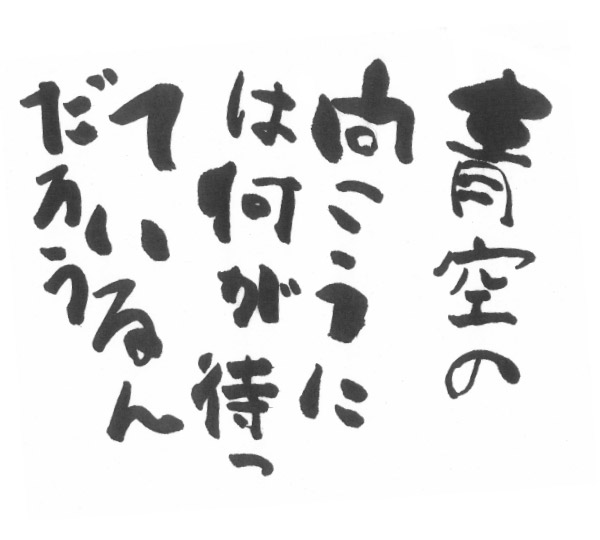 青空の
向こうに
は何が待っ
ているん
だろう